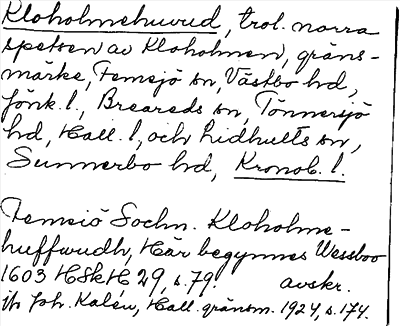 Kloholmehuvud, trol. norra
spetsen av Kloholmen, gräns-
märke, Femsjö sn, Västbo hd,
Jönk. l., Breareds sn, Tönnersjö
hd, Hall. l., och Lidhults sn,
Sunnerbo hd, Kronob. l.
Femsiö Sochn. Kloholme-
huffwudh, Här begynnes Wessboo
1603 HSkH 29, s. 79. avskr.
jfr Joh. Kalén, Hall. gränsm. 1924, s. 174.